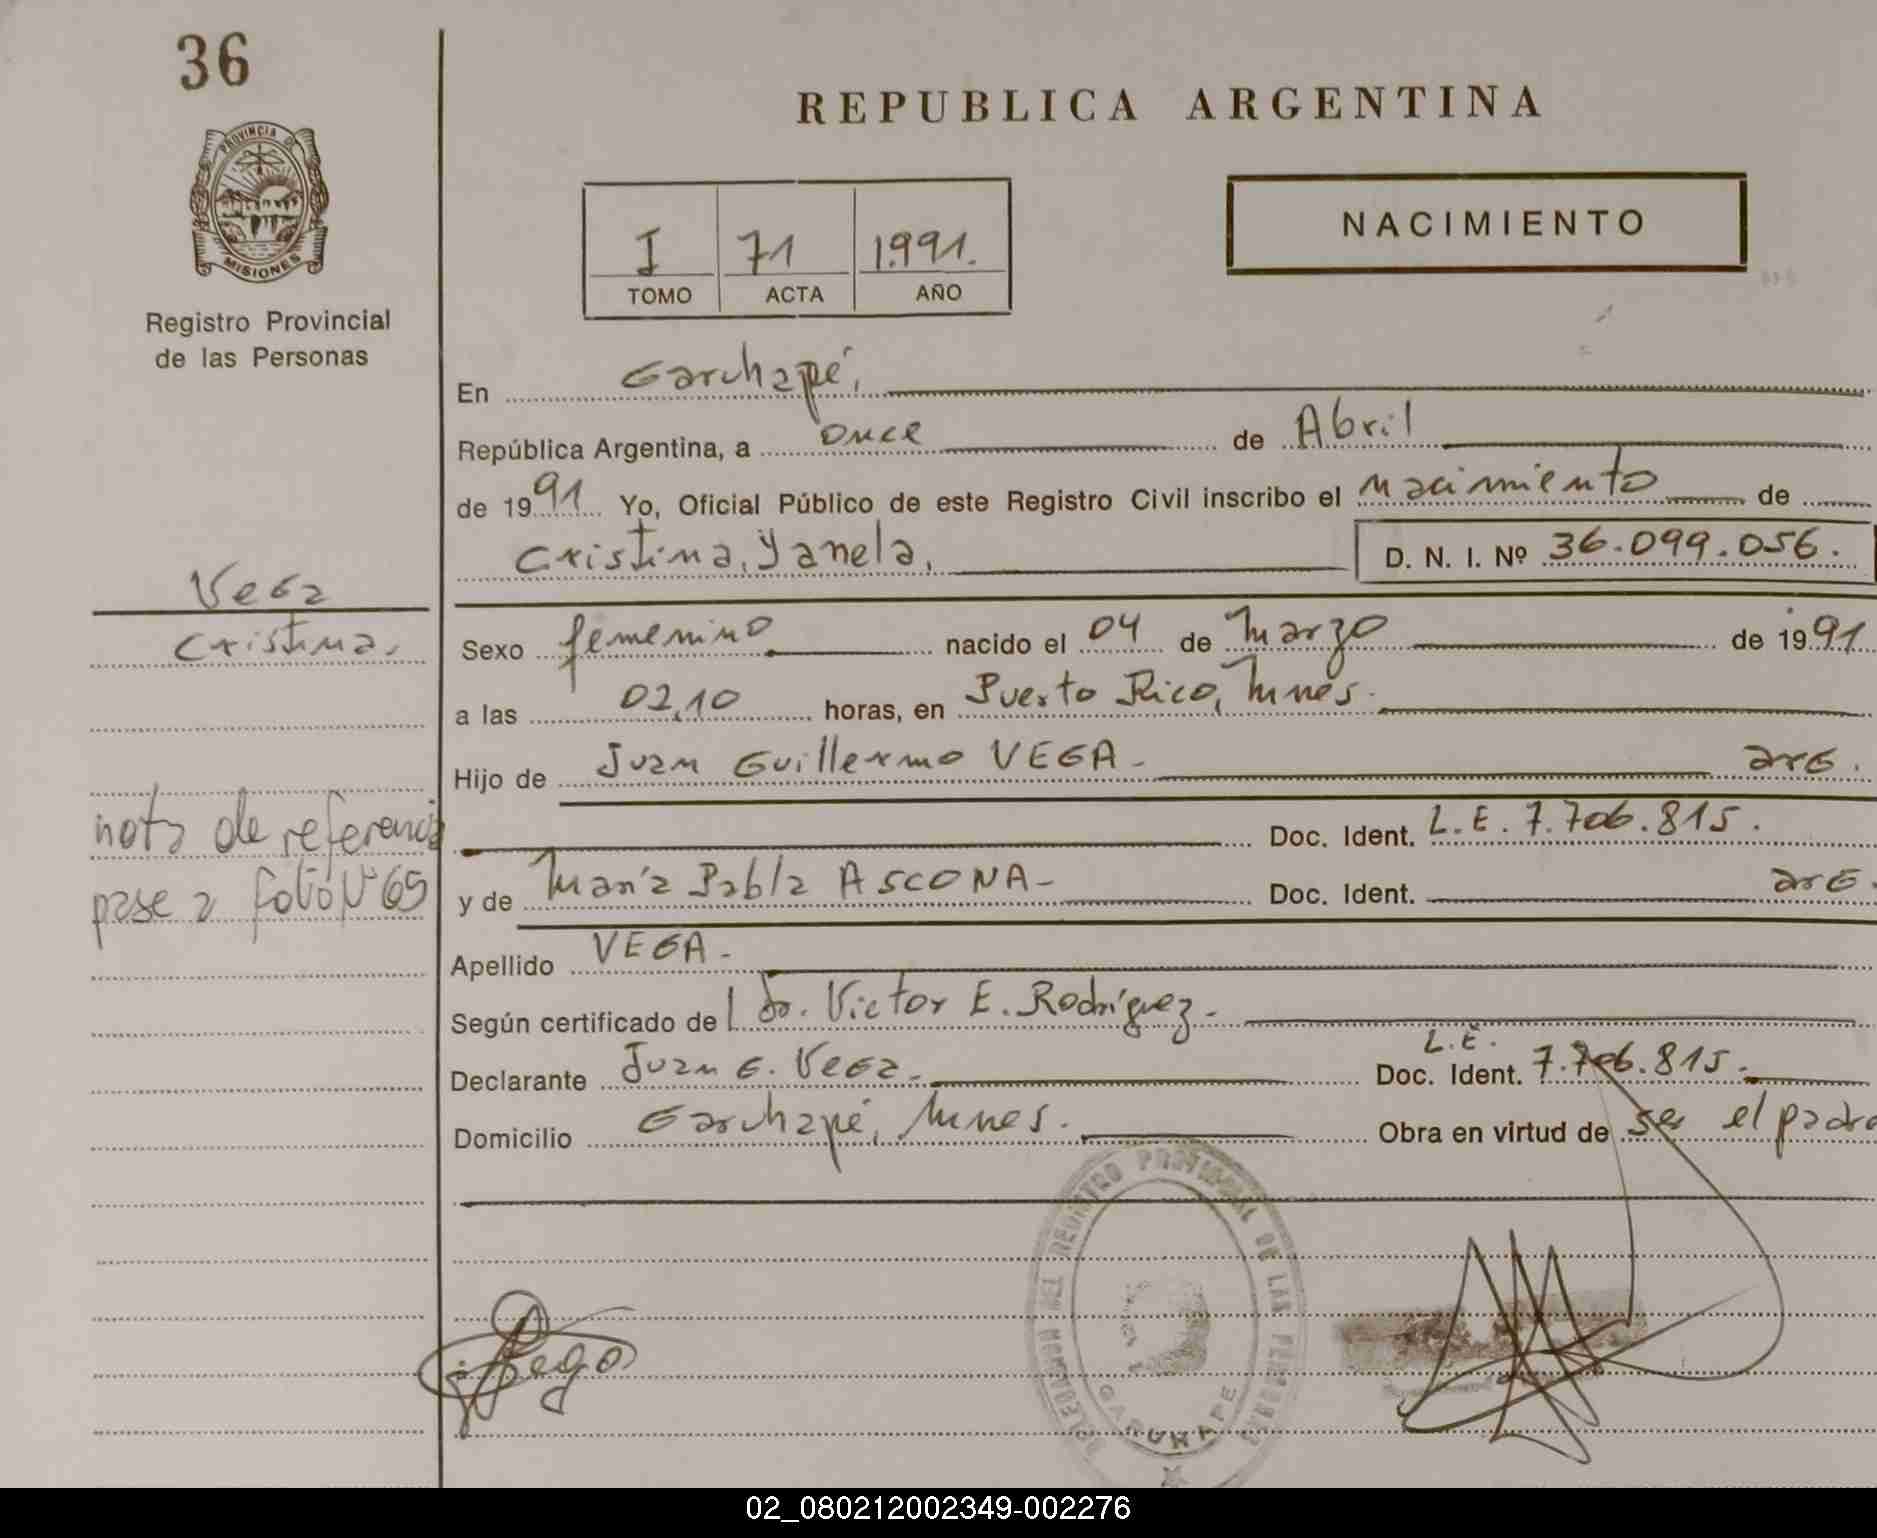 36
REPUBLICA ARGENTINA
PROVINCIA DE
MISIONES
Registro Provincial
de las Personas
I 71 1.991.
TOMO ACTA AÑO
NACIMIENTO
En Garuhapé,
República Argentina, a once de Abril
de 1991 Yo, Oficial Público de este Registro Civil inscribo el nacimiento de
Cristina, Yanela, D. N. I. Nº 36.099.056.
Vega
Cristina.
Sexo femenino nacido el 04 de Marzo de 1991
a las 02,10 horas, en Puerto Rico, Mnes.
Hijo de Juan Guillermo VEGA- arg.
Doc. Ident. L.E. 7.706.815.
nota de referencia
pase a folio Nº 65
y de María Pabla ASCONA- Doc. Ident. arg.
Apellido VEGA-
Según certificado de l Dr. Victor E. Rodríguez-
Declarante Juan G. Vega- Doc. Ident. L.E. 7.706.815-
Domicilio Garuhapé, Mnes. Obra en virtud de ser el padre
REGISTRO PROVINCIAL DE LAS PERSONAS
GARUHAPE
02_080212002349-002276